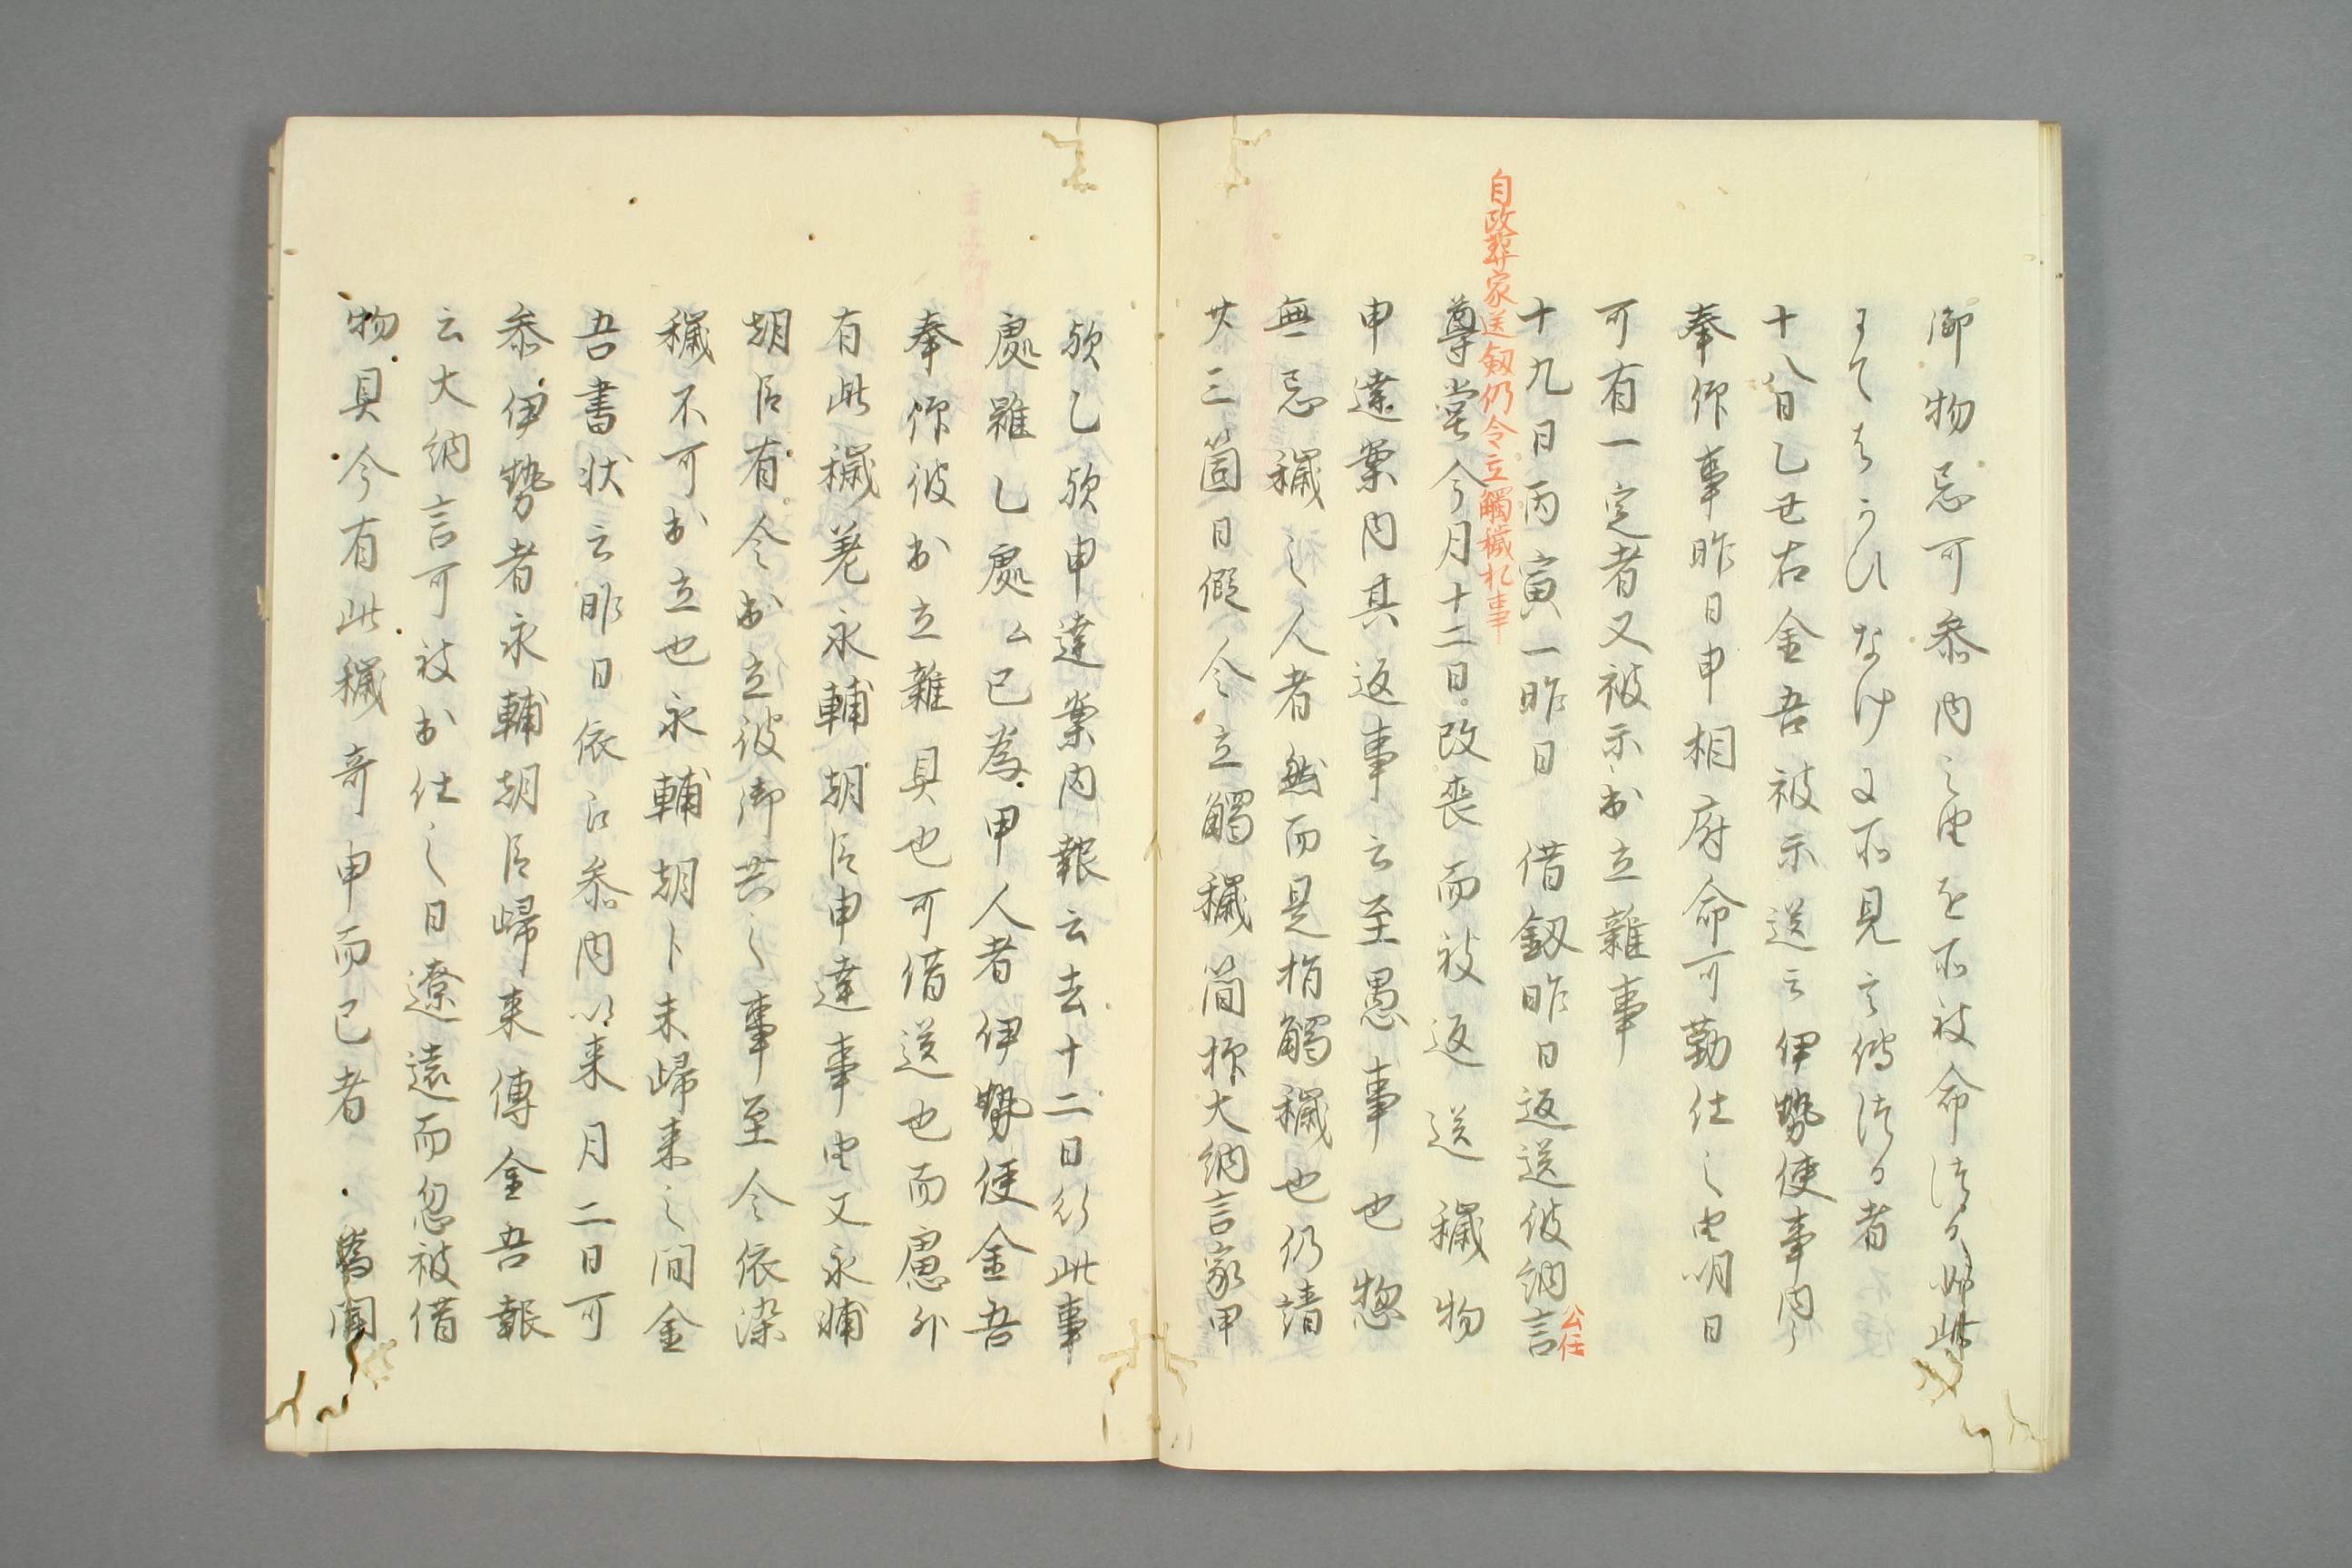 御物忌可参内之由を不被命
十八日乙丑右金吾被示送云伊勢使事内々
奉仰事昨日申相府命可勤仕之由明日
可有一定者又被示出立雑事
自改葬家送釼仍令立觸穢札事
十九日丙寅一昨日借釼昨日返送彼納言
公任
尊堂今月十二日改喪而被返送穢物
申達案内其返事云至愚事也惣
無忌穢之人者然而是指觸穢也仍請
廿三箇日假令立觸穢簡抑大納言家甲
欤乙欤申達案内報云去十二日行此事
處雖乙處ム已為甲人者伊勢使金吾
奉仰彼出立雑具也可借送也而慮外
有此穢差永輔朝臣申達事由又永輔
朝臣有令出立彼御共之事至今依染
穢不可出立也永輔朝卜未歸来之間金
吾書状云昨日依召参内以来月二日可
参伊勢者永輔朝臣歸来傳金吾報
云大納言可被出仕之日遼遠而忽被借
物具今有此穢奇申而已者